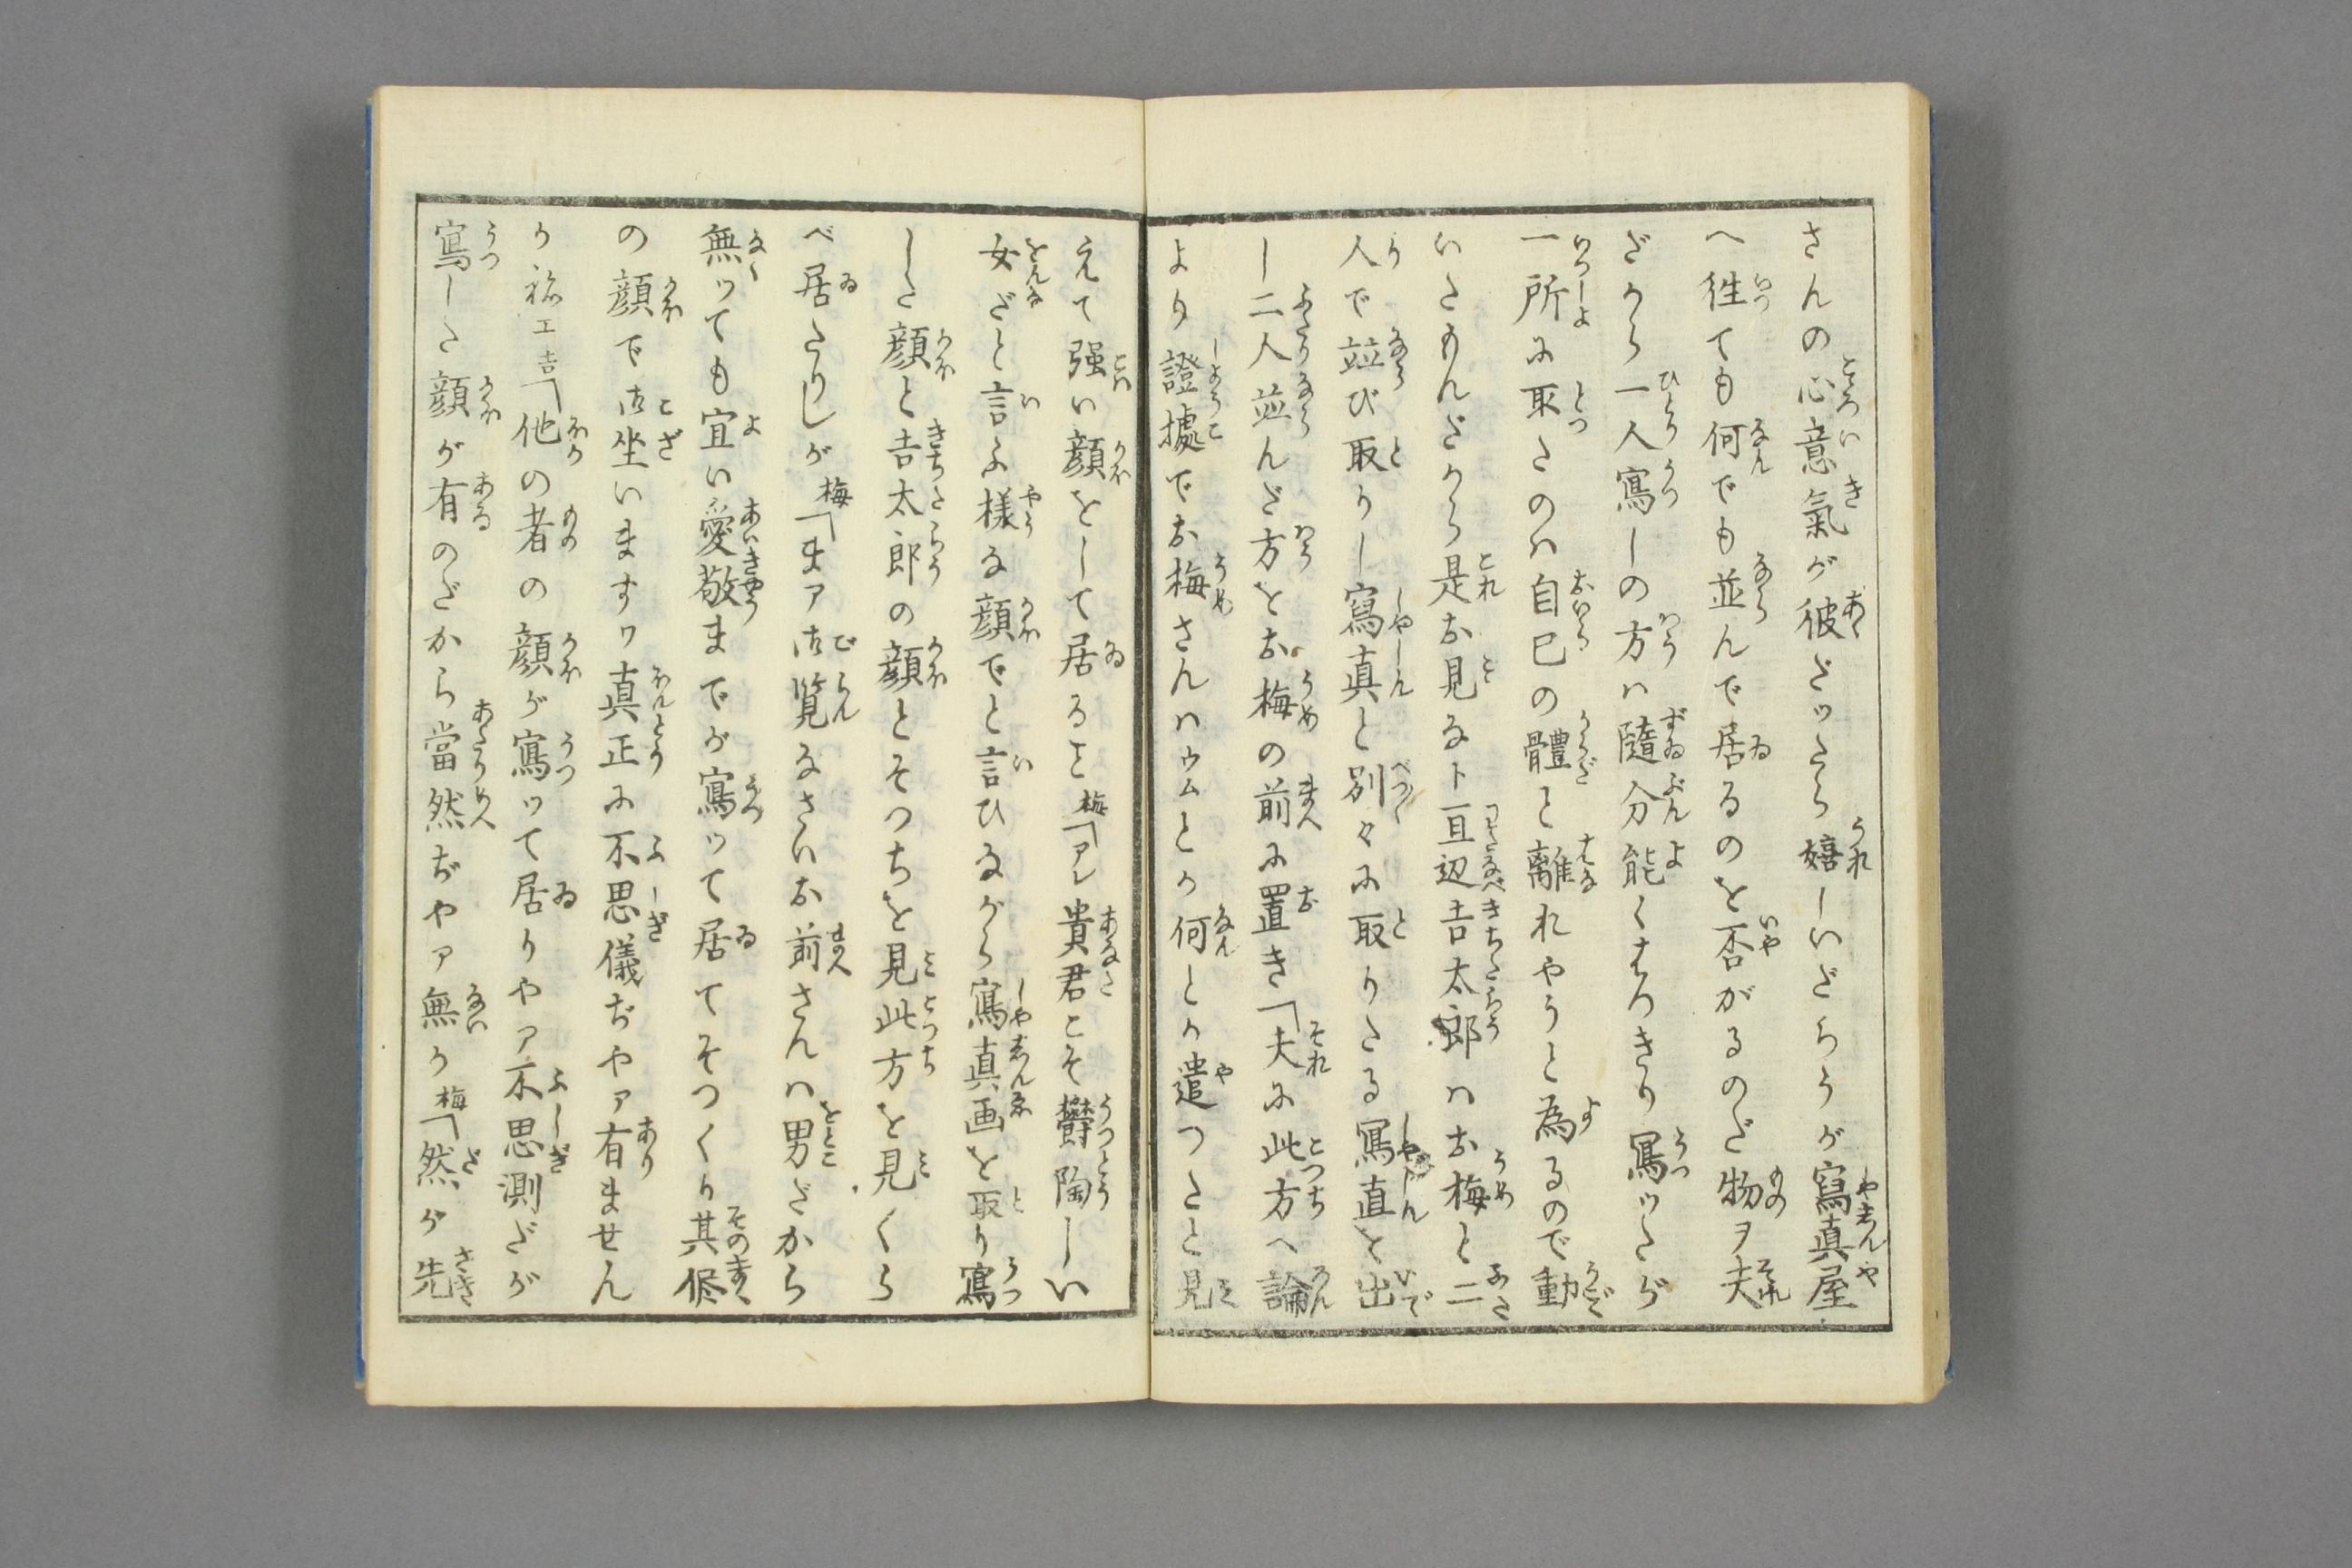 さんの心意氣が彼だッたら嬉しいだらうが寫真屋
へ徃ても何でも並んで居るのを否がるのだ物ヲ夫
だから一人寫しの方ハ隨分能くはつきり寫ッたが
一所に取たのハ自已の體と離れやうと為るので動
いたもんだから是お見なト亘辺吉太郎ハお梅と二
人で竝び取りし寫真と別々に取りたる寫真を出
し二人並んだ方をお梅の前に置き「夫に此方へ論
より證據でお梅さんハウムとか何とか遣つたと見
えて强い顔をして居ると梅「アレ貴君こそ欝陶しい
女だと言ふ樣な顔でと言ひながら寫真画を取り寫
した顔と吉太郎の顔とそつちを見此方を見くら
べ居たりしが梅「まア御覧なさいお前さんハ男だから
無ッても宜い愛敬までが寫ッて居てそつくり其侭
の顔で御坐いますワ真正に不思儀ぢやア有ません
か祢エ吉「他の者の顔が寫ッて居りやア不思測だが
寫した顔が有のだから當然ぢやア無か梅「然、が先